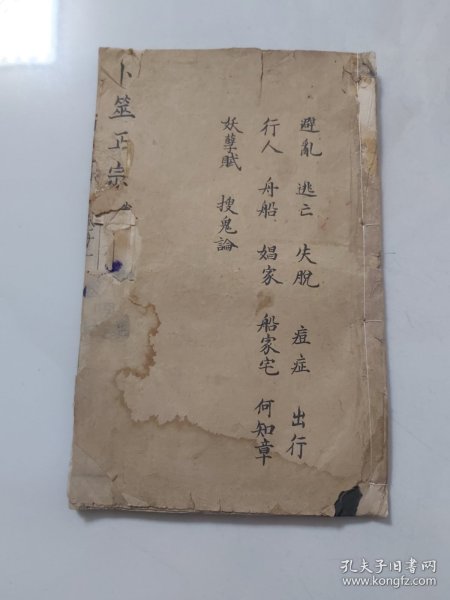 避亂 逃亡 失脫 痘症 出行
行人 舟船 娼家 船家宅 何知章
妖孽賦 搜鬼論
卜筮正宗
孔夫子旧书网
www.kongfz.com